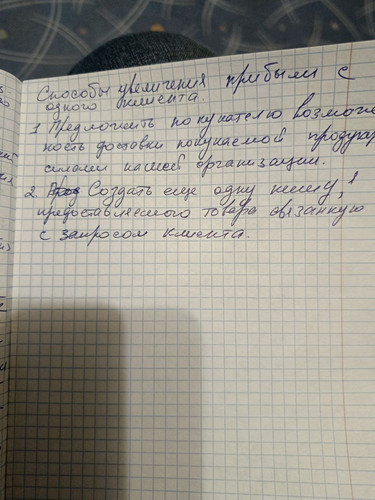 Способы увеличения прибыли с
одного клиента.
1 Предложить покупателю возмож
ность доставки покупаемой
силами нашей организации.
2. Создать еще одну
предоставляемого товара связанную
с запросом клиента.